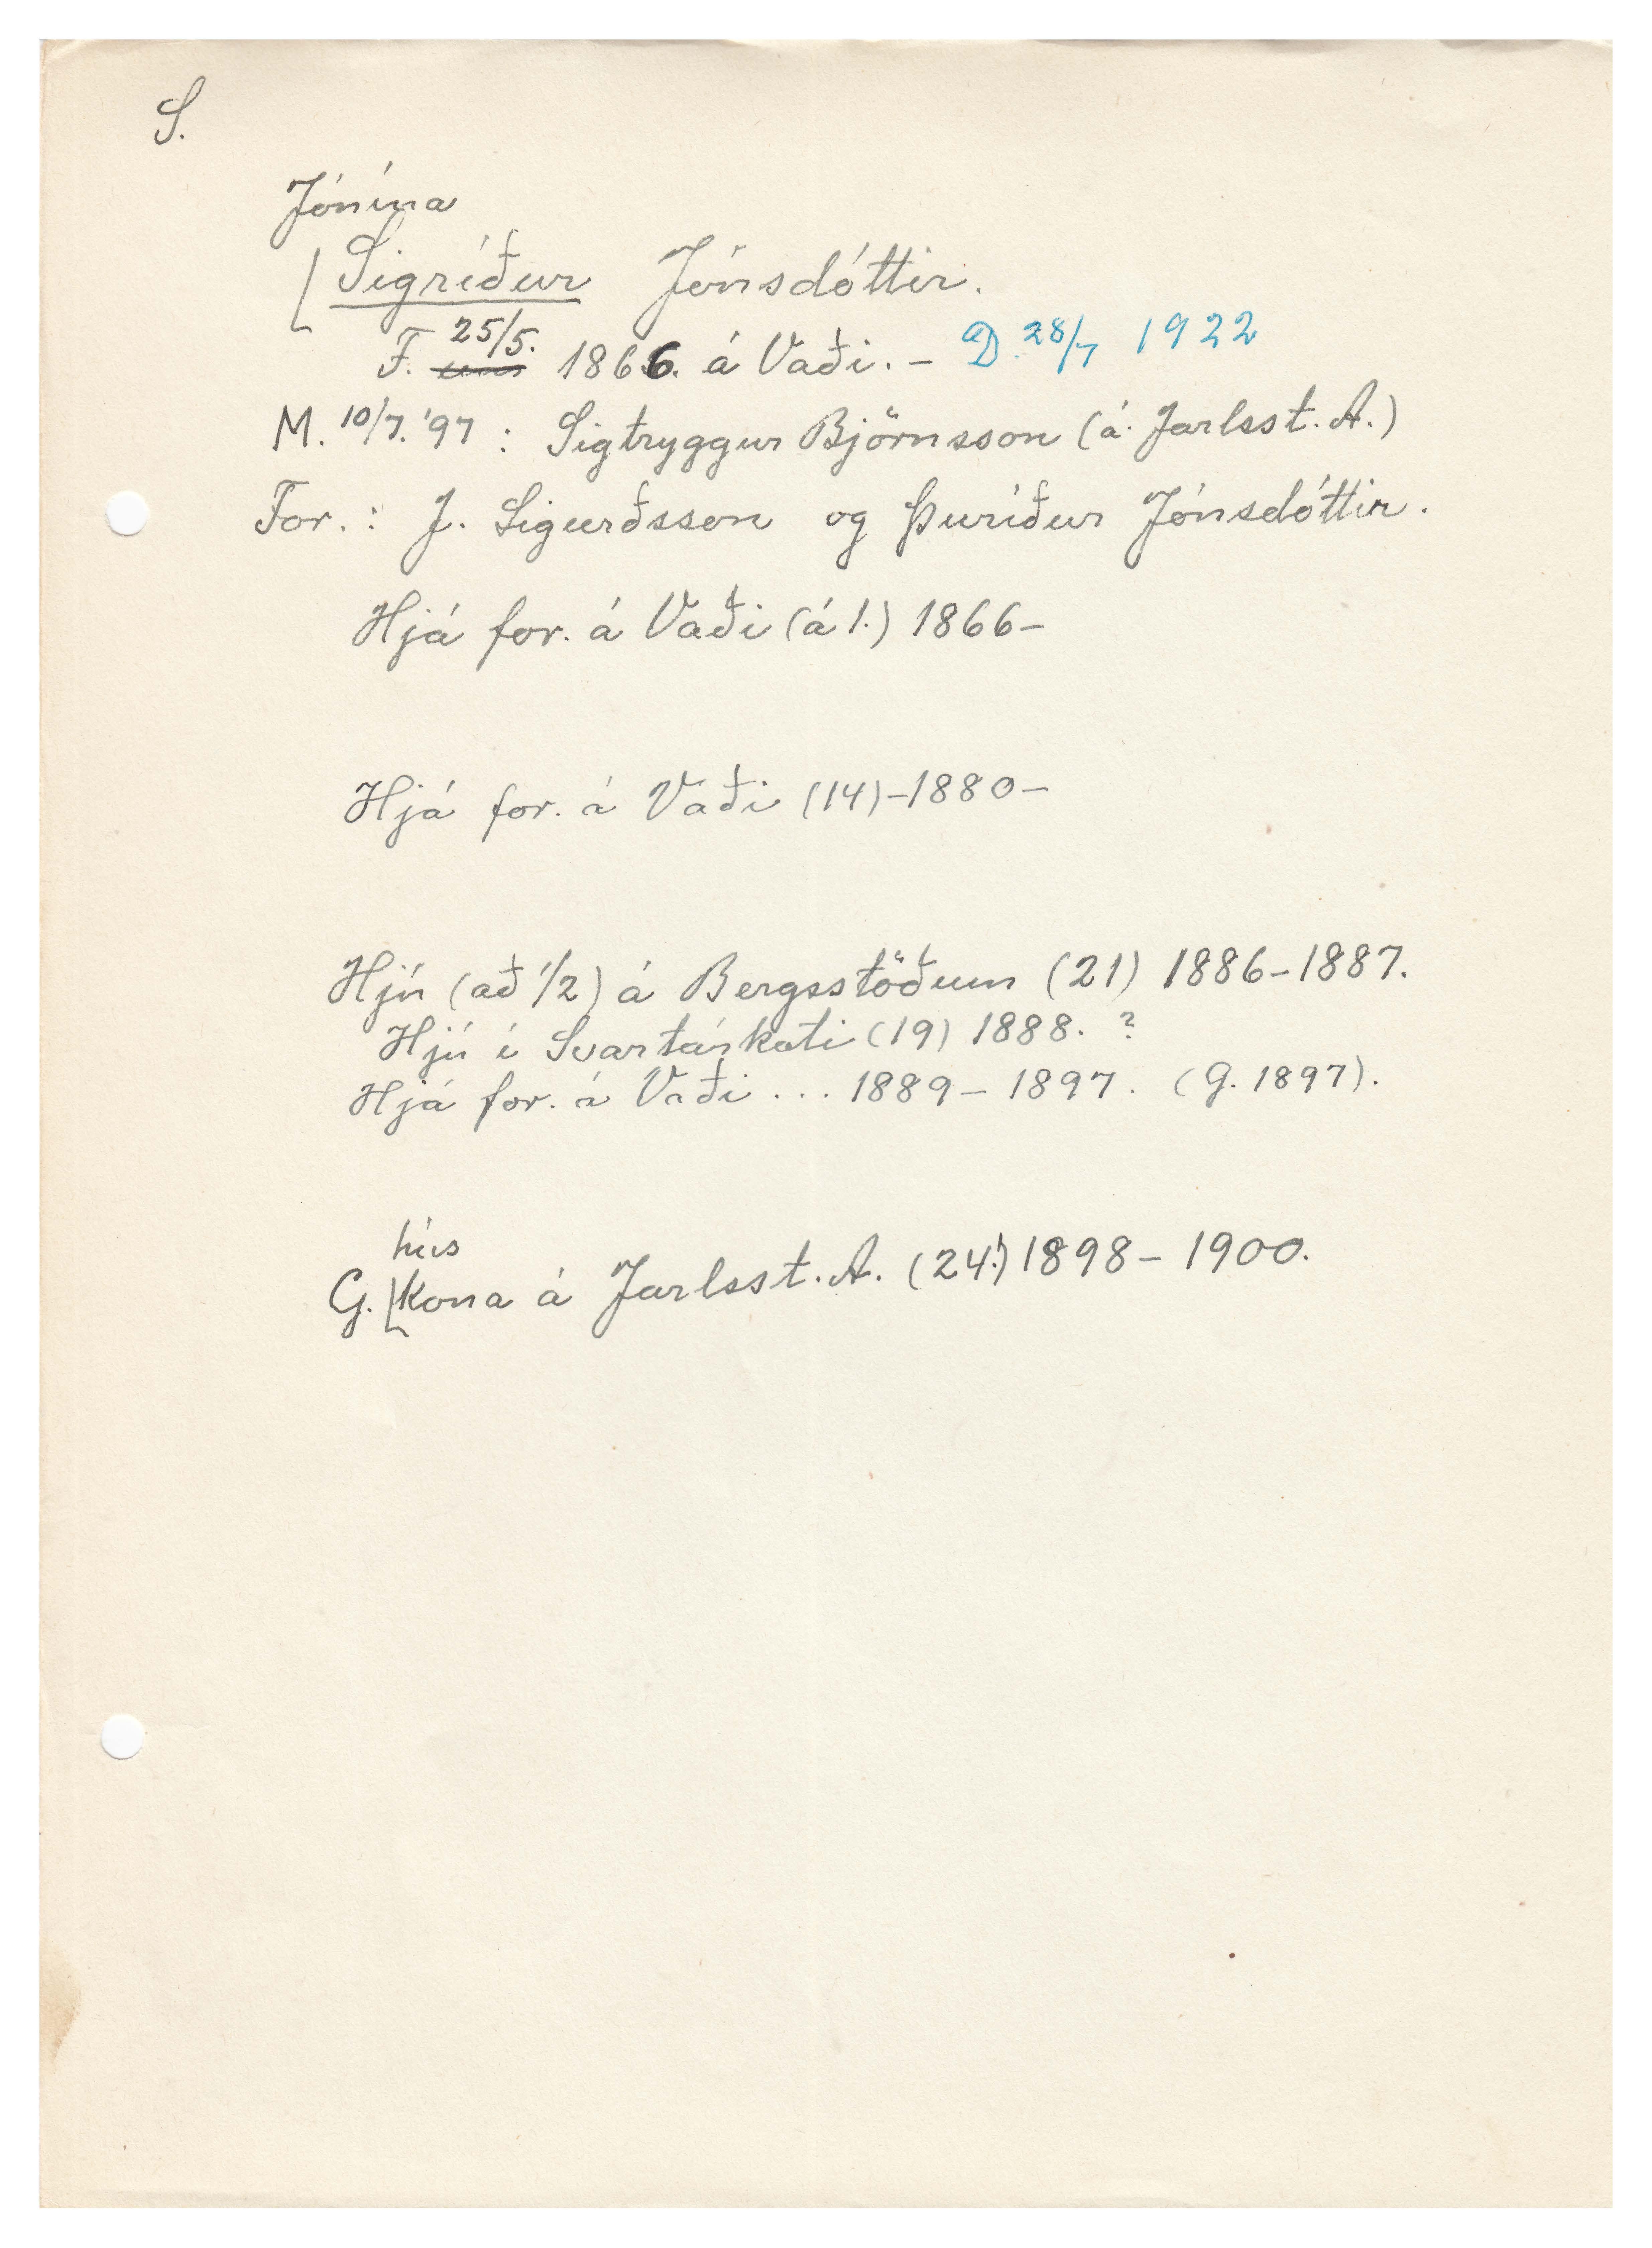 S.
Jónína
Sigríður Jónsdóttir.
F. 25/5. 1866. á Vaði. - D. 28/7 1922
M. 10/7. '97 : Sigtryggur Björnsson (á Jarlsst. A.)
For. : J. Sigurðsson og Þuríður Jónsdóttir.
Hjá for. á Vaði (á 1.) 1866-
Hjá for. á Vaði (14) -1880-
Hjú (að 1/2) á Bergsstöðum (21) 1886-1887.
Hjú í Svartárkoti (19) 1888. ?
Hjá for. á Vaði ... 1889 - 1897. (G. 1897).
hús
G. kona á Jarlsst. A. (24!) 1898 - 1900.